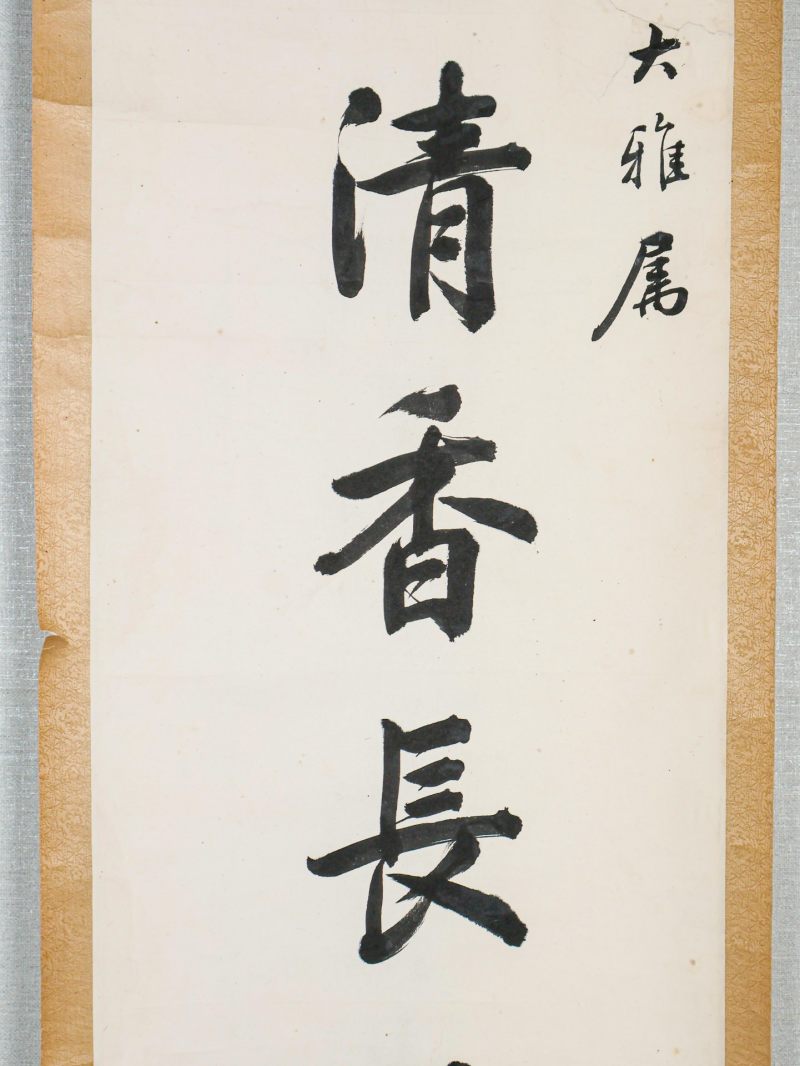 大雅属
清香長